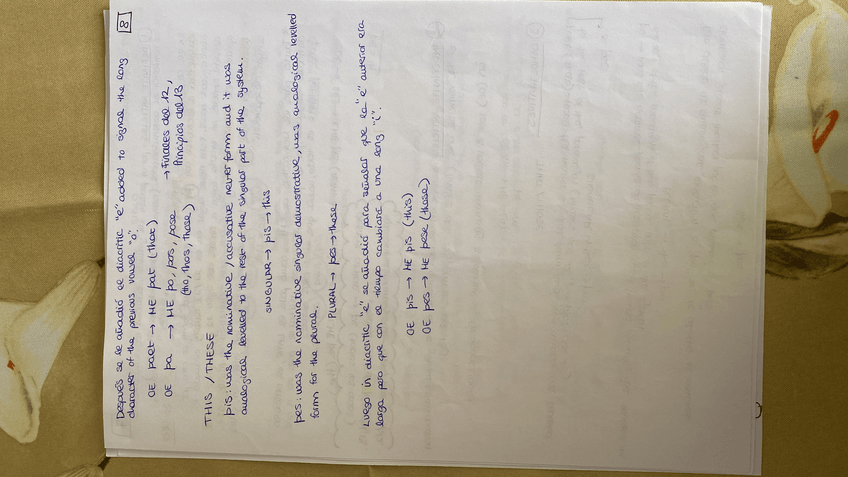 8
Después se le añadió el diacritic "e" added to signal the long
character of the previous vowel "o".
OE þaet → ME þat (that)
OE þa → ME þo, þos, þose → Finales del 12,
(tho, thos, those) Principios del 13
THIS / THESE
þis: was the nominative / accusative neuter form and it was
analogical levelled to the rest of the singular part of the system.
SINGULAR → þis → this
þes: was the nominative singular demostrative, was analogical levelled
form for the plural.
PLURAL → þes → these
Luego in diacritic "e" se añadió para señalar que la "e" anterior era
larga para que con el tiempo cambiara a una long "i".
OE þis → ME þis (this)
OE þes → ME þese (these)